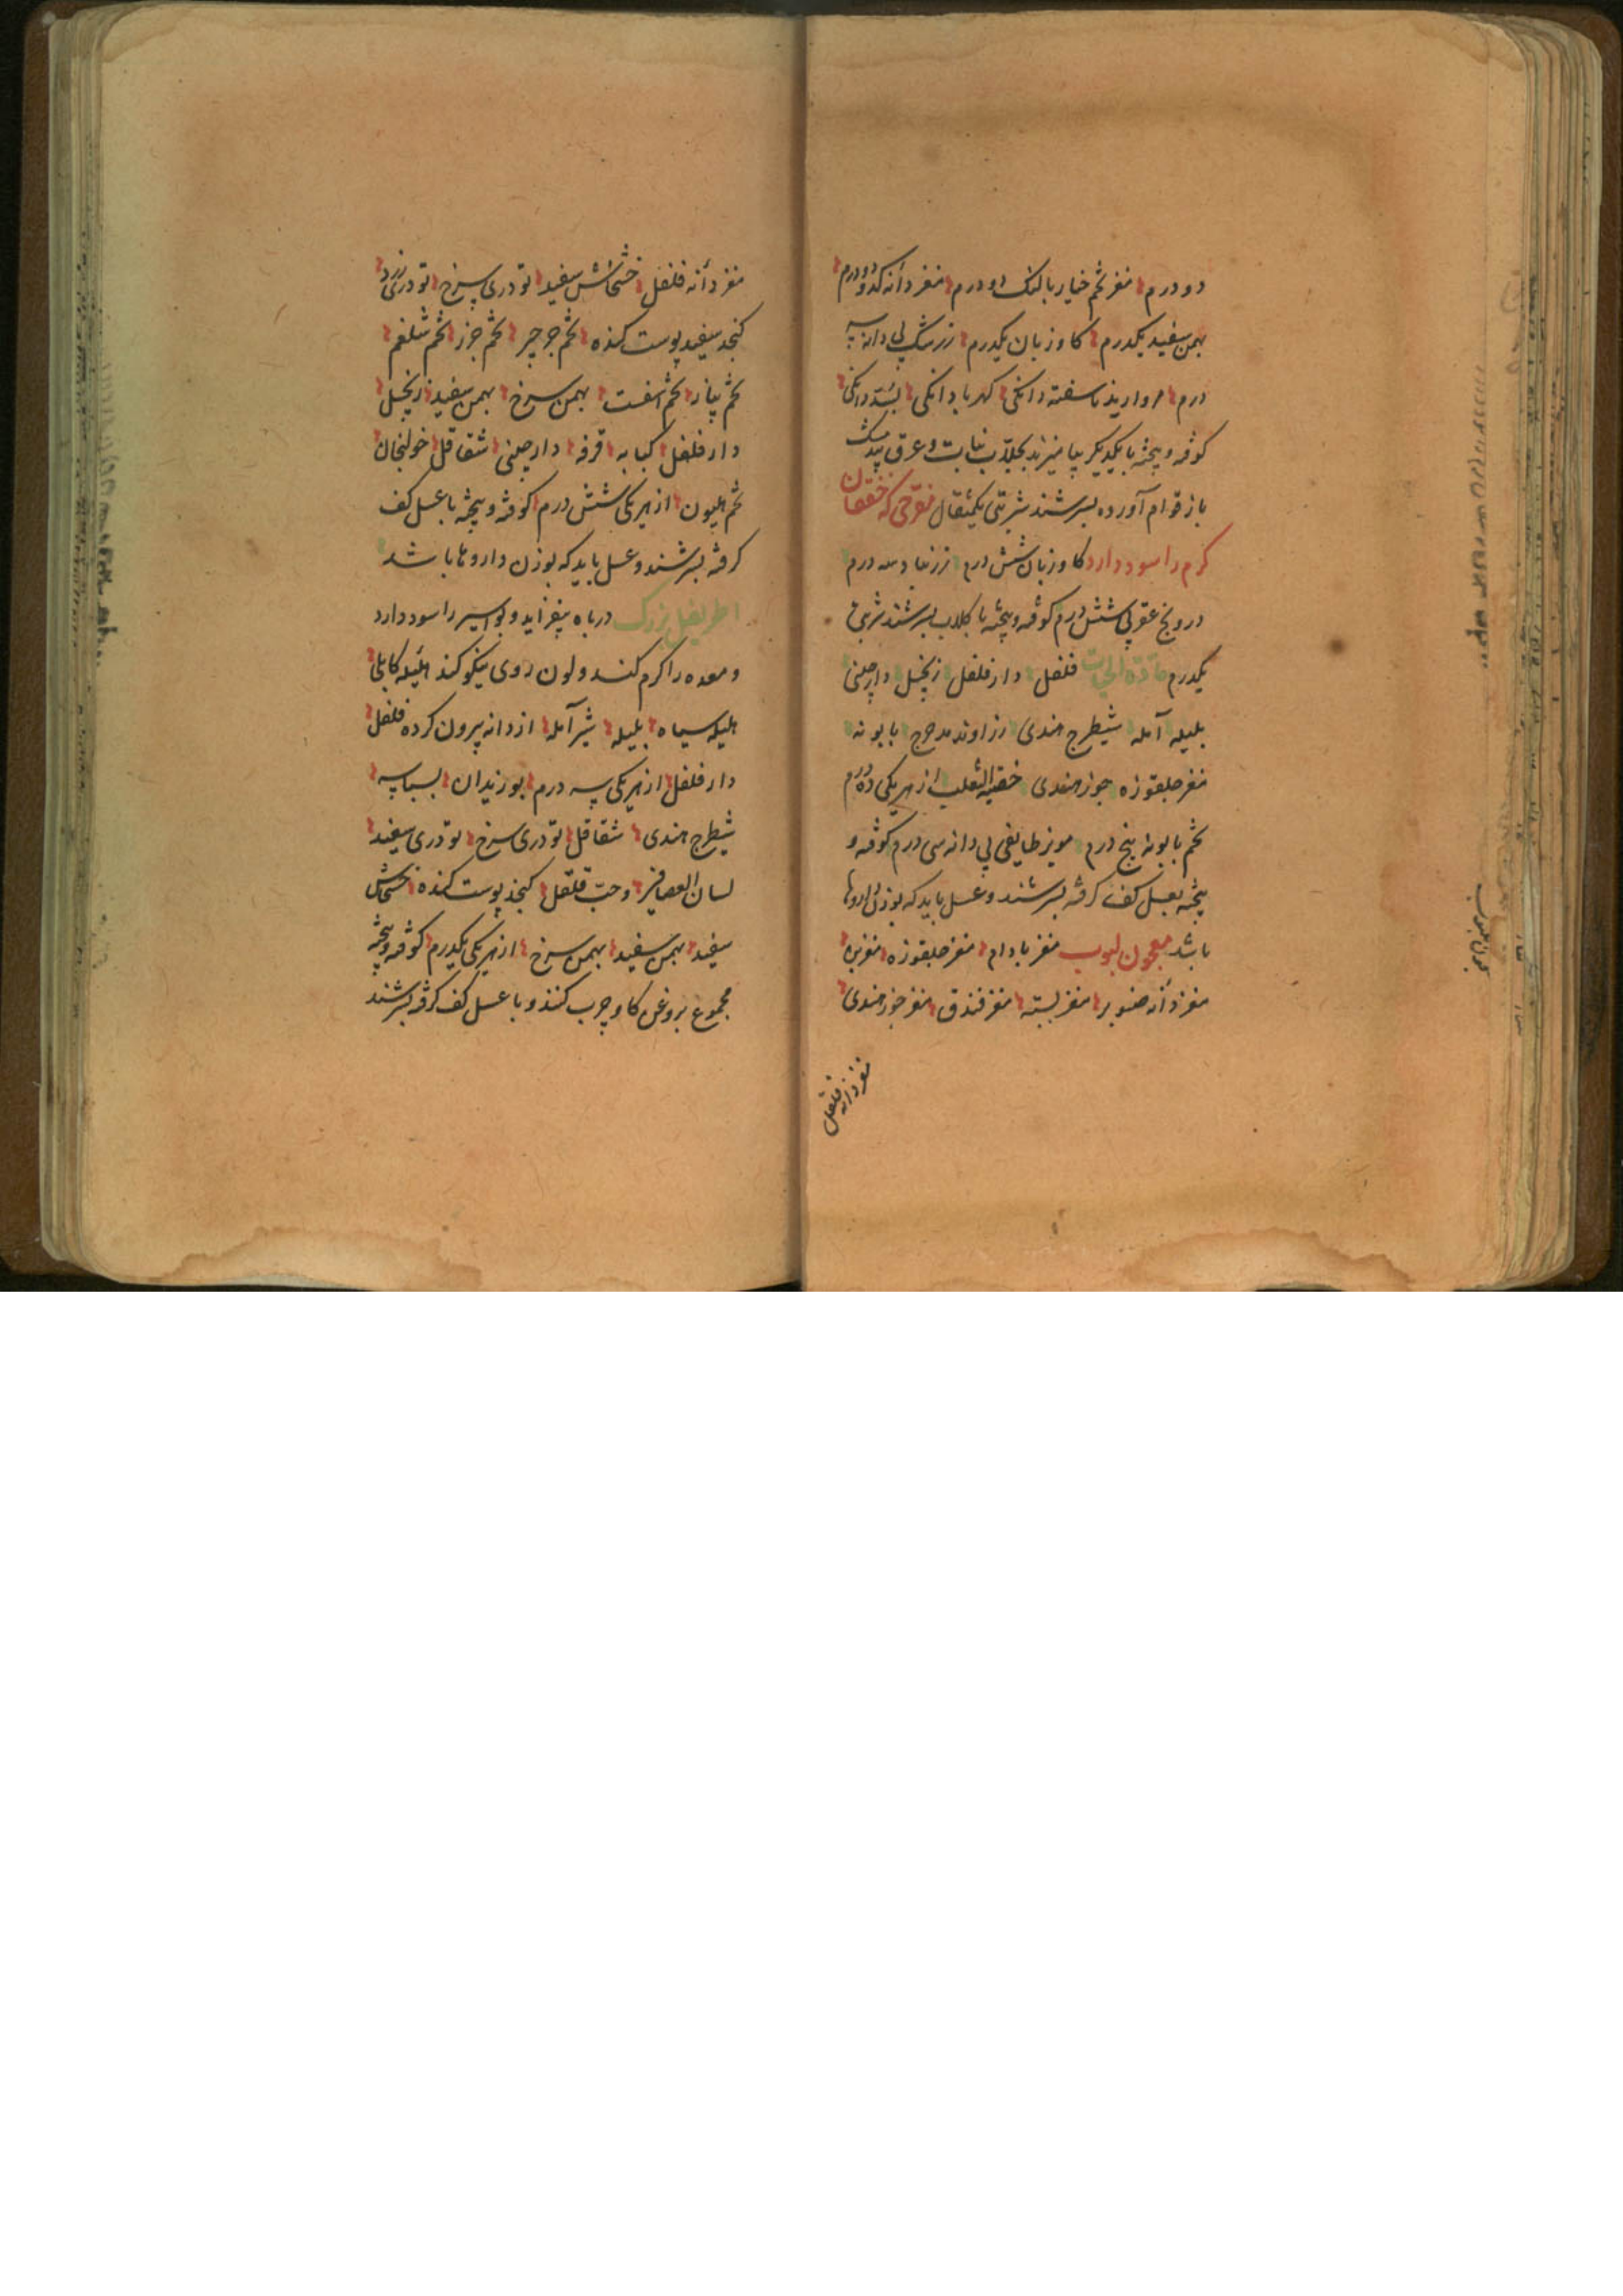 دو درم مغز تخم خیار بالنک دو درم مغز دانه کدو دو درم
بهمن سفید یکدرم کاو زبان یکدرم زرشک بی دانه سه
درم مروارید ناسفته دانکی کهربا دانکی بسد دانکی
کوفته و پیخته با یکدیکر بیامیزند بجلاب نبات و عرق بیدمشک
باز قوام آورده بسرشند شربتی یکمثقال مفرحی که خفقان
کرم را سود دارد کاو زبان شش درم زرنباد سه درم
درونج عقربی شش درم کوفته و پیخته با کلاب بسرشند شربتی
یکدرم مادة الحیات فلفل دارفلفل زنجبیل دارچینی
بلیله آمله شیطرج هندی زراوند مدحرج بابونه
مغز جلغوزه جوز هندی خصیة الثعلب از هر یکی ده درم
تخم بابونه پنج درم مویز طایفی بی دانه سی درم کوفته و
پیخته بعسل کف کرفته بسرشند و عسل باید که بوزن داروها
باشد معجون لبوب مغز بادام مغز جلغوزه مغز بزه
مغز دانه صنوبر مغز پسته مغز فندق مغز جوز هندی
مغز دانه فلفل
مغز دانه فلفل خشخاش سفید تودری سرخ تودری زرد
کنجد سفید پوست کنده تخم جرجیر تخم جزر تخم شلغم
تخم پیاز تخم اسفست بهمن سرخ بهمن سفید زنجبیل
دارفلفل کبابه قرفه دارچینی شقاقل خولنجان
تخم هلیون از هر یکی شش درم کوفته و پیخته با عسل کف
کرفته بسرشند و عسل باید که بوزن داروها باشد
اطریفل بزرک در باه بیفزاید و بواسیر را سود دارد
و معده را کرم کند و لون روی نیکو کند هلیله کابلی
هلیله سیاه بلیله شیر آمله از دانه بیرون کرده فلفل
دارفلفل از هر یکی سه درم بوزیدان بسباسه
شیطرج هندی شقاقل تودری سرخ تودری سفید
لسان العصافیر و حب قلقل کنجد پوست کنده خشخاش
سفید بهمن سفید بهمن سرخ از هر یکی یکدرم کوفته و پیخته
مجموع بروغن کاو چرب کنند و با عسل کف کرفته بسرشند